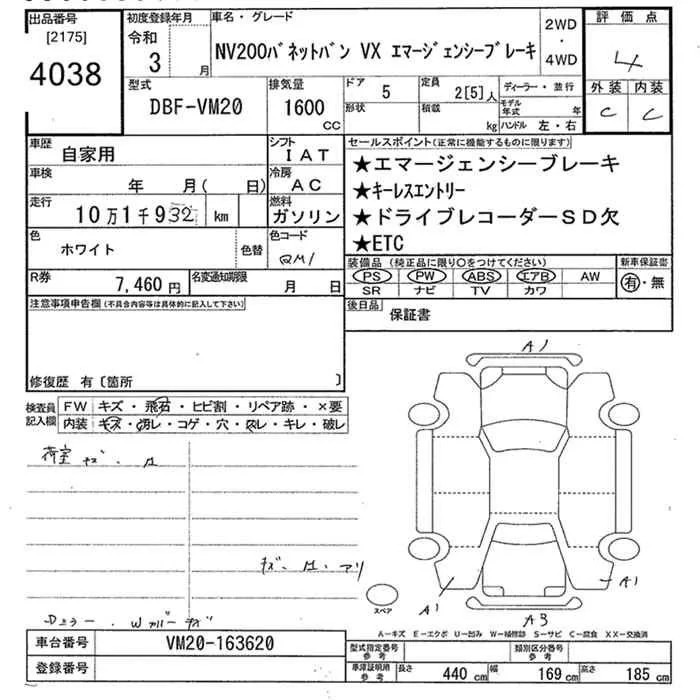 出品番号 初度登録年月 車名・グレード 2WD・4WD 評価点
[2175] 令和 3 月 NV200バネットバン VX エマージェンシーブレーキ 4
4038
型式 排気量 ドア 5 定員 2[5]人 ディーラー・並行 外装 内装
DBF-VM20 1600 CC 形状 積載 kg モデル年式 年 C C
ハンドル 左・右
車歴 自家用 シフト IAT セールスポイント(正常に機能するものに限ります)
車検 年 月( 日) 冷房 AC ★エマージェンシーブレーキ
★キーレスエントリー
走行 10万1千932 km 燃料 ガソリン ★ドライブレコーダーSD欠
★ETC
色 ホワイト 色替 色コード QM1
装備品 (純正品に限り○をつけてください) 新車保証書
PS PW ABS エアB AW 有・無
SR ナビ TV カワ
R券 7,460円 名変通知期限 月 日
注意事項申告欄(不具合内容等は具体的に記入して下さい) 後日品 保証書
修復歴 有〔箇所 〕
検査員記入欄 FW キズ・飛石・ヒビ割・リペア跡・×要
内装 キズ・汚レ・コゲ・穴・スレ・キレ・破レ
A1
荷室 キズ
A1 A1
スペア
A3
A―キズ E―エクボ U―凹み W―補修跡 S―サビ C―腐食 XX―交換済
車台番号 VM20-163620 型式指定番号 参考 類別区分番号 参考
登録番号 車庫証明用 参考 長さ 440 cm 幅 169 cm 高さ 185 cm